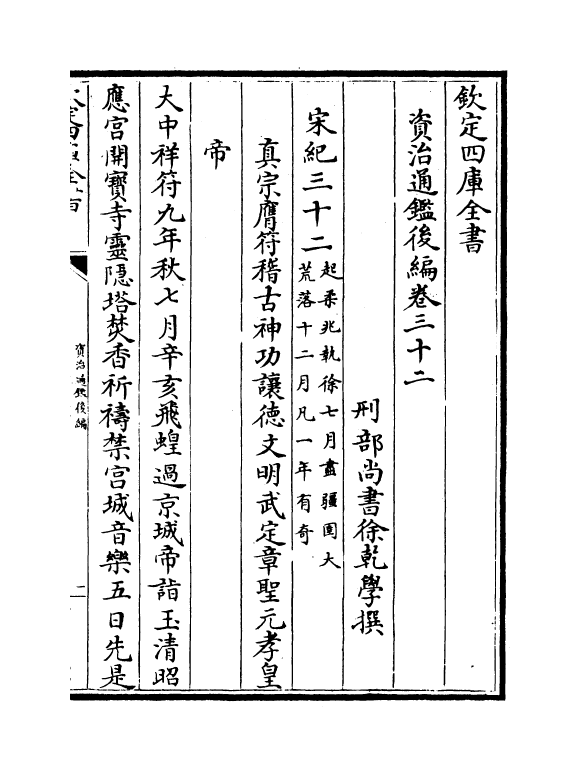 欽定四庫全書
資治通鑑後編卷三十二
刑部尚書徐乾學撰
宋紀三十二起柔兆執徐七月盡彊圉大
荒落十二月凡一年有奇
真宗膺符稽古神功讓德文明武定章聖元孝皇
帝
大中祥符九年秋七月辛亥飛蝗過京城帝詣玉清昭
應宮開寶寺靈隱塔焚香祈禱禁宮城音樂五日先是
資治通鑑後編